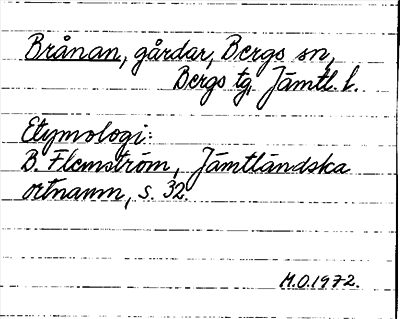 Brånan, gårdar, Bergs sn,
Bergs tg. Jämtl. l.
Etymologi:
B. Flemström, Jämtländska
ortnamn, s. 32.
M.O.1972.